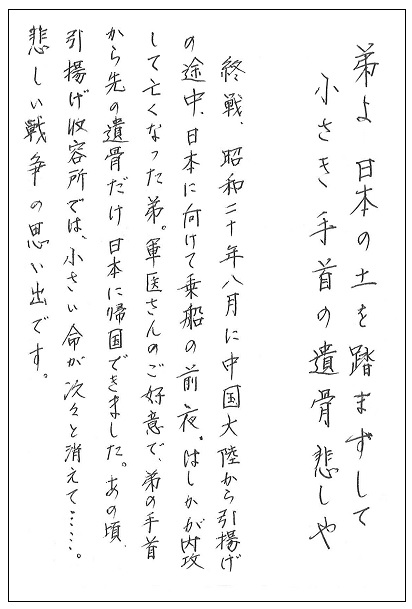 弟よ 日本の土を踏まずして
小さき手首の遺骨悲しや
終戦、昭和二十年八月に中国大陸から引揚げ
の途中、日本に向けて乗船の前夜。はしかが内攻
して亡くなった弟。軍医さんのご好意で、弟の手首
から先の遺骨だけ日本に帰国できました。あの頃、
引揚げ収容所では、小さい命が次々と消えて……。
悲しい戦争の思い出です。